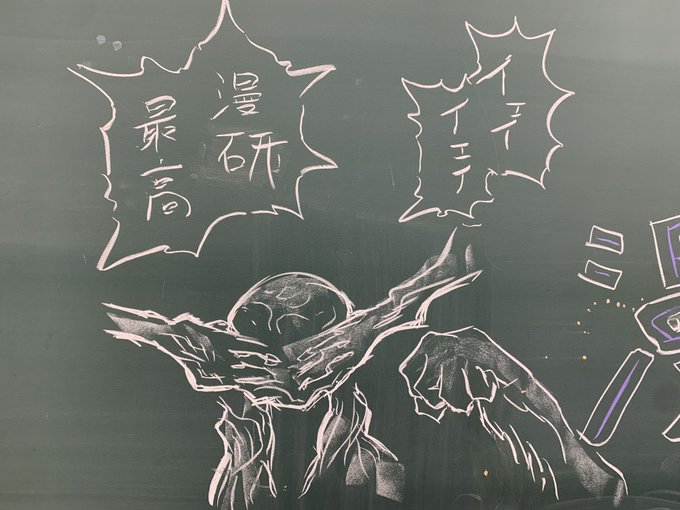 イェイ
イェイ
漫研
最高